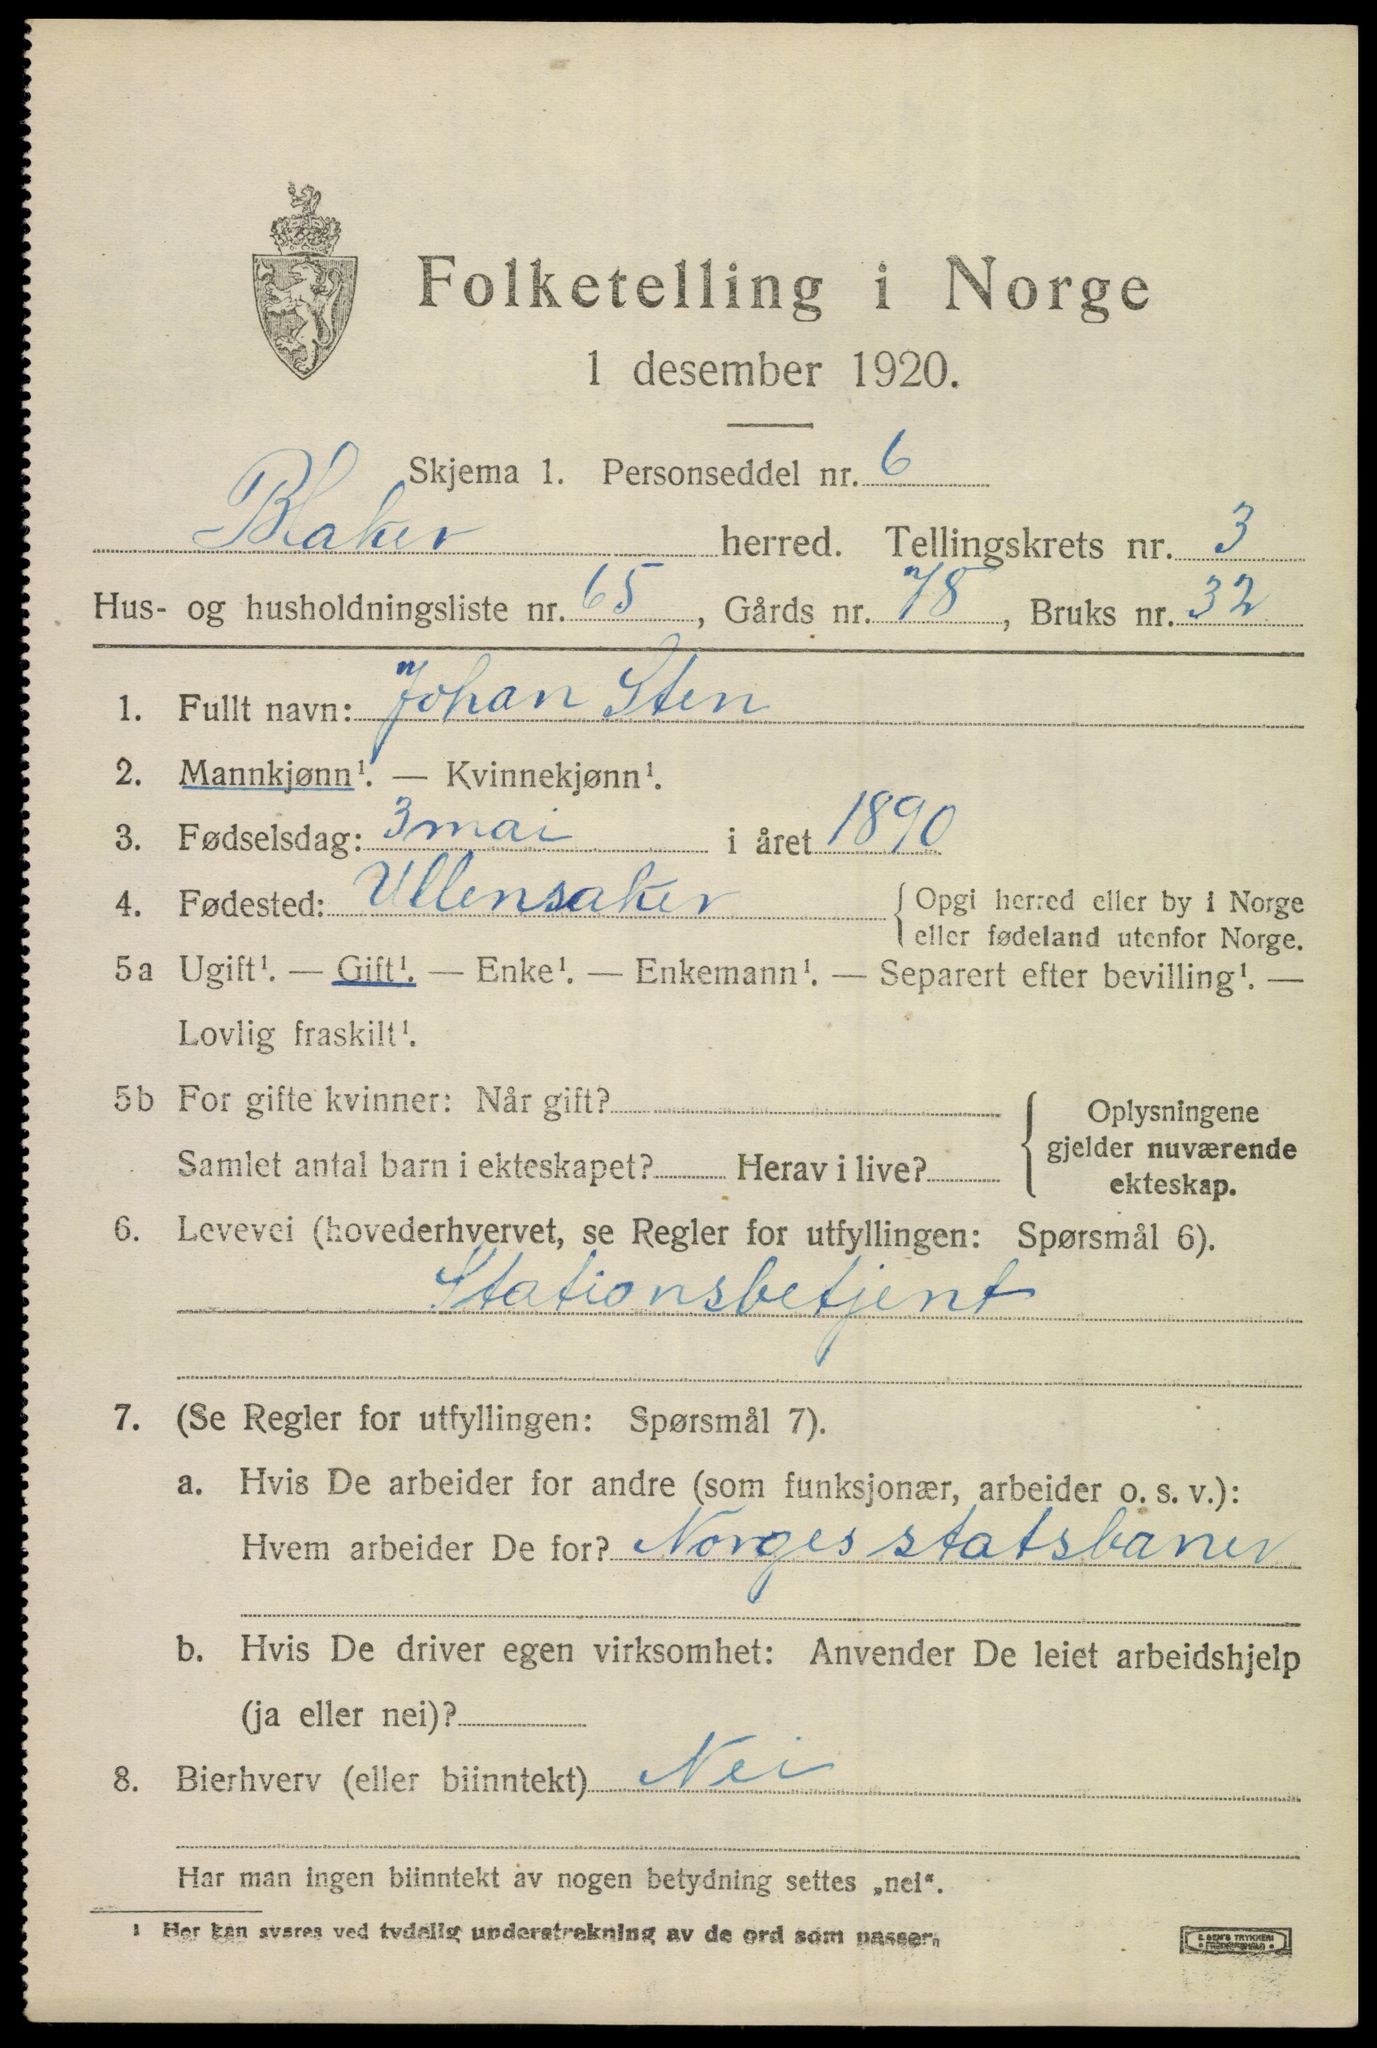 Folketelling i Norge
1 desember 1920.
Skjema 1. Personseddel nr. 6
Blaker herred. Tellingskrets nr. 3
Hus- og husholdningsliste nr. 65, Gårds nr. 78, Bruks nr. 32
1. Fullt navn: Johan Sten
2. Mannkjønn¹. — Kvinnekjønn¹.
3. Fødselsdag: 3 mai i året 1890
4. Fødested: Ullensaker { Opgi herred eller by i Norge
eller fødeland utenfor Norge.
5a Ugift¹. — Gift¹. — Enke¹. — Enkemann¹. — Separert efter bevilling¹. —
Lovlig fraskilt¹.
5b For gifte kvinner: Når gift?
Samlet antal barn i ekteskapet? Herav i live?
{ Oplysningene
gjelder nuværende
ekteskap.
6. Levevei (hovederhvervet, se Regler for utfyllingen: Spørsmål 6).
Stationsbetjent
7. (Se Regler for utfyllingen: Spørsmål 7).
a. Hvis De arbeider for andre (som funksjonær, arbeider o. s. v.):
Hvem arbeider De for? Norges statsbaner
b. Hvis De driver egen virksomhet: Anvender De leiet arbeidshjelp
(ja eller nei)?
8. Bierhverv (eller biinntekt) Nei
Har man ingen biinntekt av nogen betydning settes „nei“.
1 Her kan svares ved tydelig understrekning av de ord som passer.
E. SEM'S TRYKKERI
• FREDRIKSHALD •